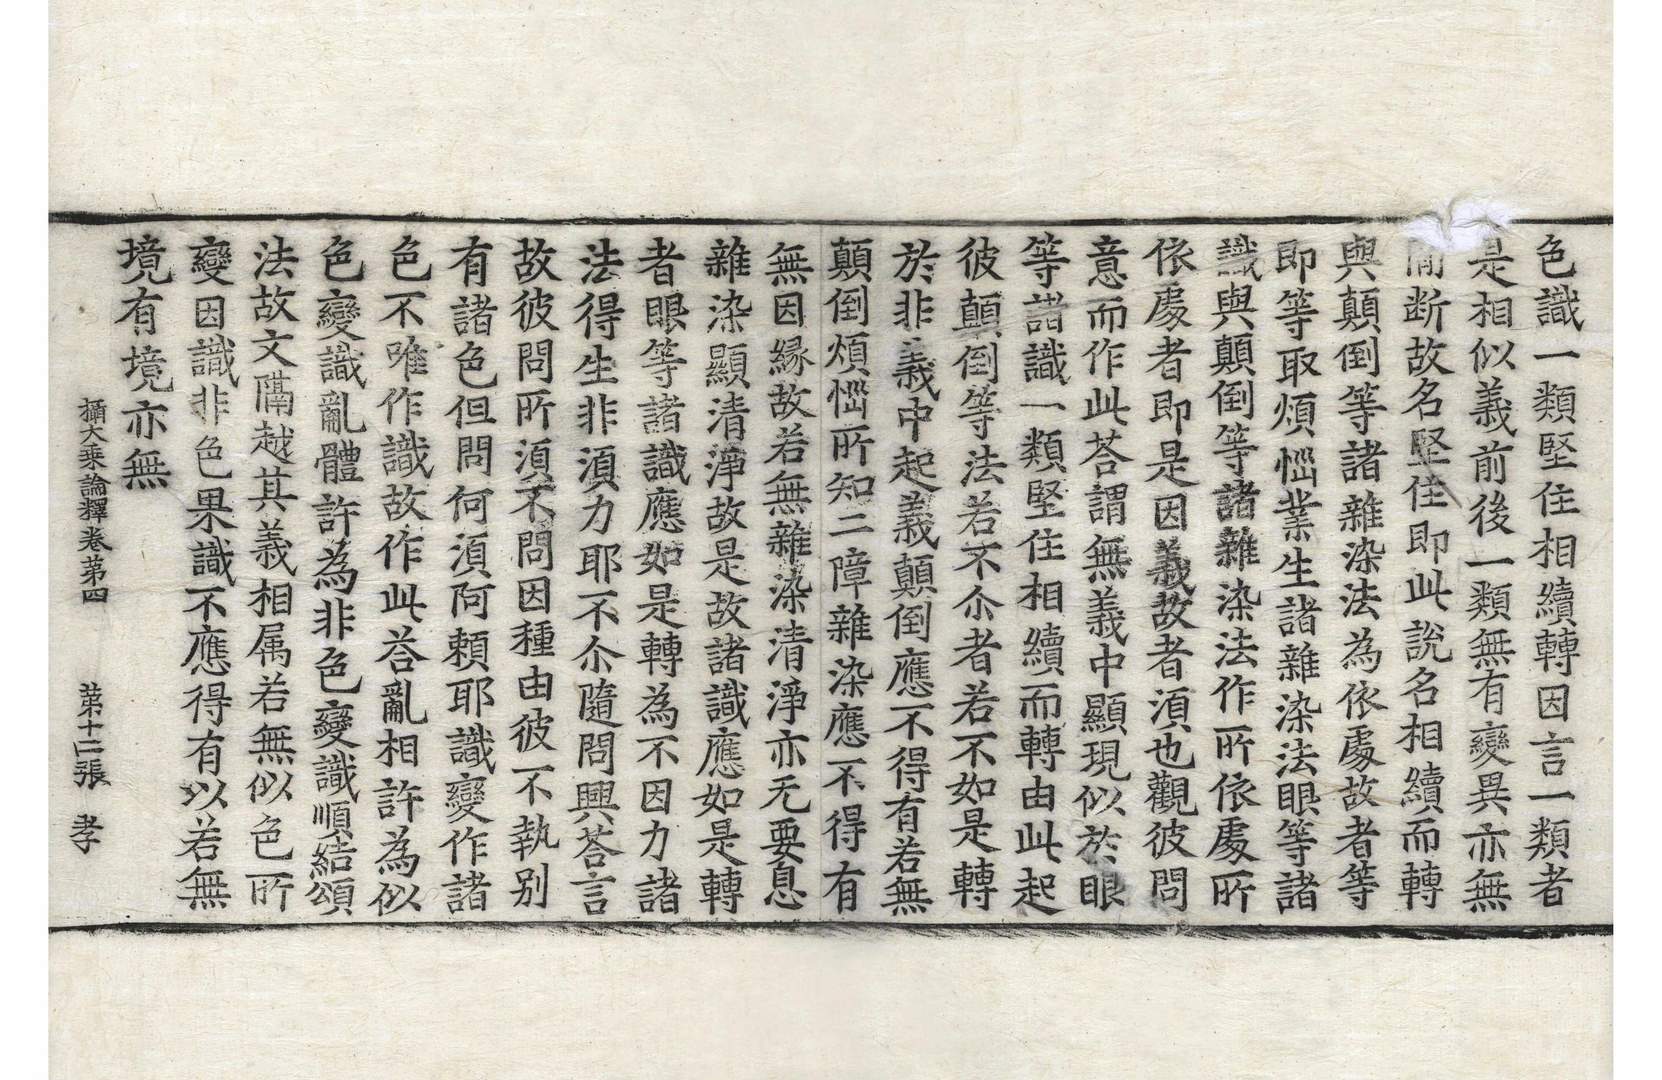 色識一類堅住相續轉因言一類者
是相似義前後一類無有變異亦無
閒断故名堅住即此說名相續而轉
與顛倒等諸雜染法為依處故者等
即等取煩惱業生諸雜染法眼等諸
識與顛倒等諸雜染法作所依處所
依處者即是因義故者湏也觀彼問
意而作此荅謂無義中顯現似於眼
等諸識一類堅住相續而轉由此起
彼顛倒等法若不尒者若不如是轉
於非義中起義顛倒應不得有若無
顛倒煩惱所知二障雜染應不得有
無因緣故若無雜染清淨亦无要息
雜染顯清淨故是故諸識應如是轉
者眼等諸識應如是轉為不因力諸
法得生非湏力耶不尒隨問興荅言
故彼問所湏不問因種由彼不執別
有諸色但問何湏阿賴耶識變作諸
色不唯作識故作此荅亂相許為似
色變識亂體許為非色變識順結頌
法故文隔越其義相属若無似色所
變因識非色果識不應得有以若無
境有境亦無
攝大乘論釋卷苐四 苐十二張 孝